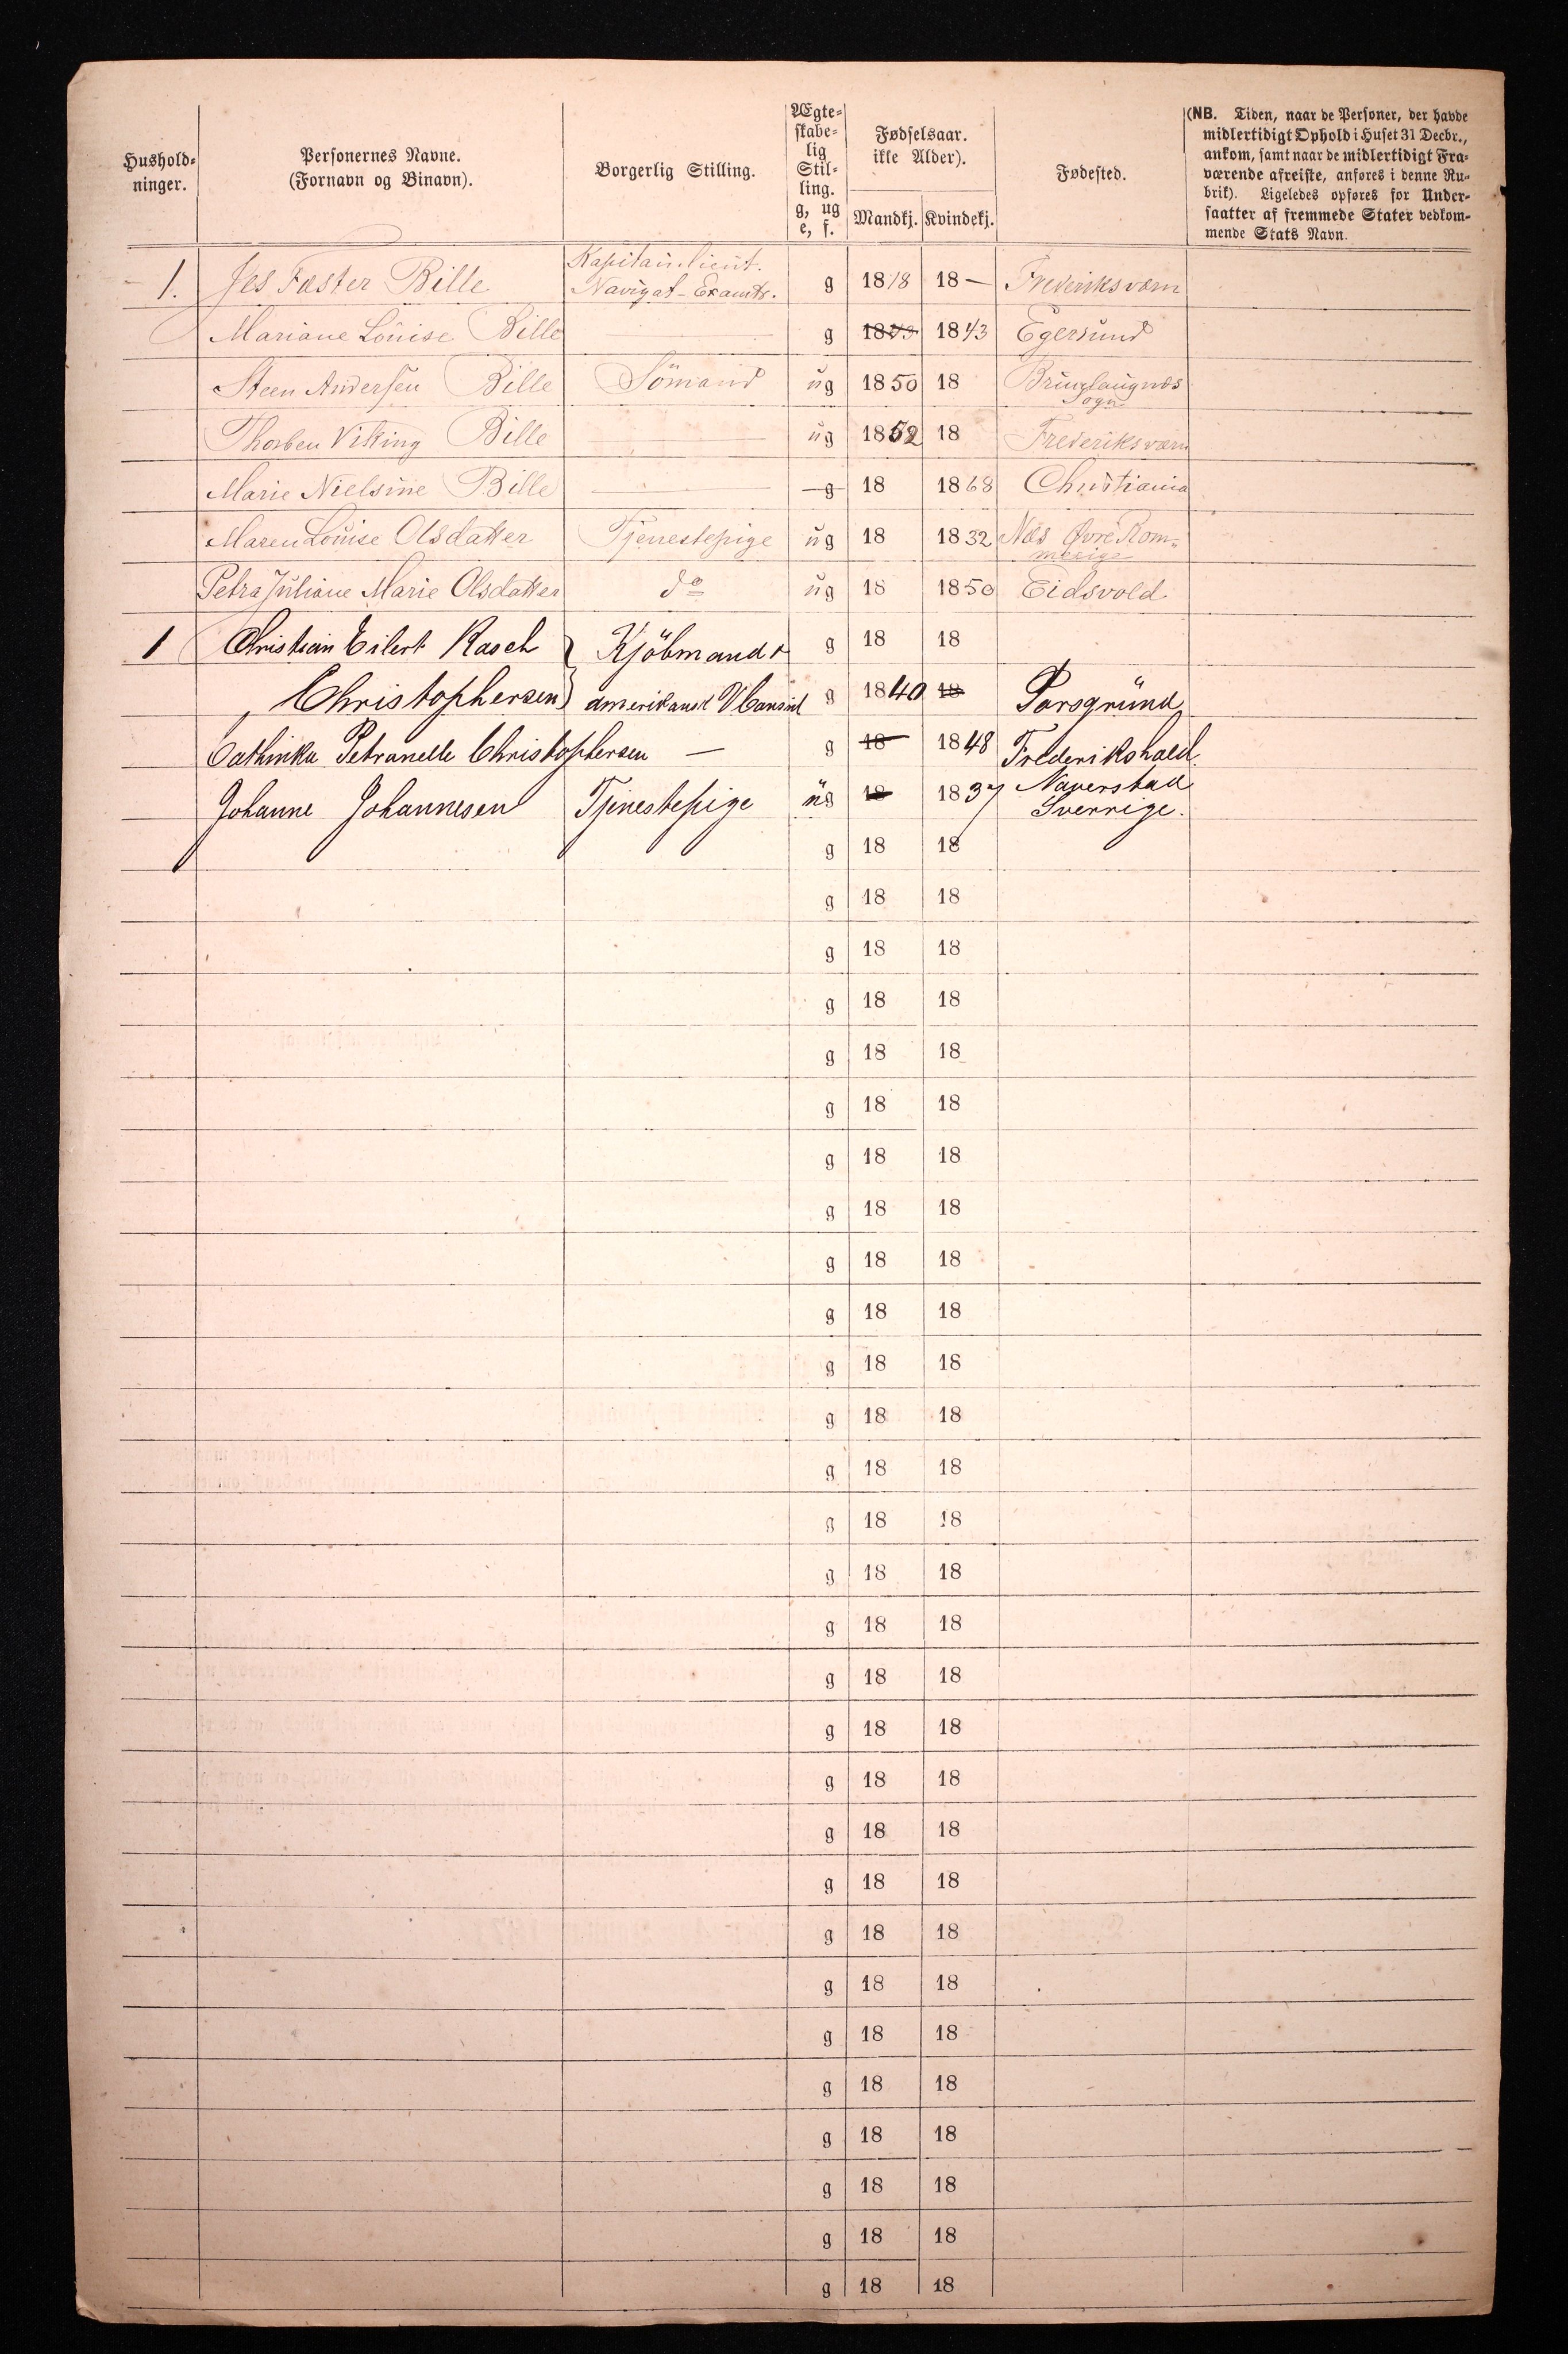 Hushold-
ninger.
Personernes Navne.
(Fornavn og Binavn).
Borgerlig Stilling.
Ægte-
skabe-
lig
Stil-
ling.
g, ug
e, f.
Fødselsaar.
ikke Alder).
Mandkj. Kvindekj.
Fødested.
(NB. Tiden, naar de Personer, der havde
midlertidigt Ophold i Huset 31 Decbr.,
ankom, samt naar de midlertidigt Fra-
værende afreiste, anføres i denne Ru-
brik). Ligeledes opføres for Under-
saatter af fremmede Stater vedkom-
mende Stats Navn.
Kapitainlieut.
1. Jes Faster Bille Navigat-Examtr. g 1818 18- Frederiksværn
Mariane Louise Bille — g 1843 1843 Egersund
Steen Andersen Bille Sömand ug 1850 18 Brunlaugnæs
Sogn
Thorben Viking Bille — ug 1852 18 Frederiksværn
Marie Nielsine Bille — g 18 1868 Christiania
Maren Louise Olsdatter Tjenestepige ug 18 1832 Næs Øvre Rom-
merige
Petra Juliane Marie Olsdatter do ug 18 1850 Eidsvold
1 Christian Eilert Rasch } Kjöbmand & g 18 18
Christophersen amerikansk VConsul g 1840 18 Porsgrund
Cathinka Petranelle Christophersen — g 18 1848 Frederikshald
Johanne Johannesen Tjenestepige ug 18 1837 Naverstad
Sverrige.
g 18 18
g 18 18
g 18 18
g 18 18
g 18 18
g 18 18
g 18 18
g 18 18
g 18 18
g 18 18
g 18 18
g 18 18
g 18 18
g 18 18
g 18 18
g 18 18
g 18 18
g 18 18
g 18 18
g 18 18
g 18 18
g 18 18
g 18 18
g 18 18
g 18 18
g 18 18
g 18 18
g 18 18
g 18 18